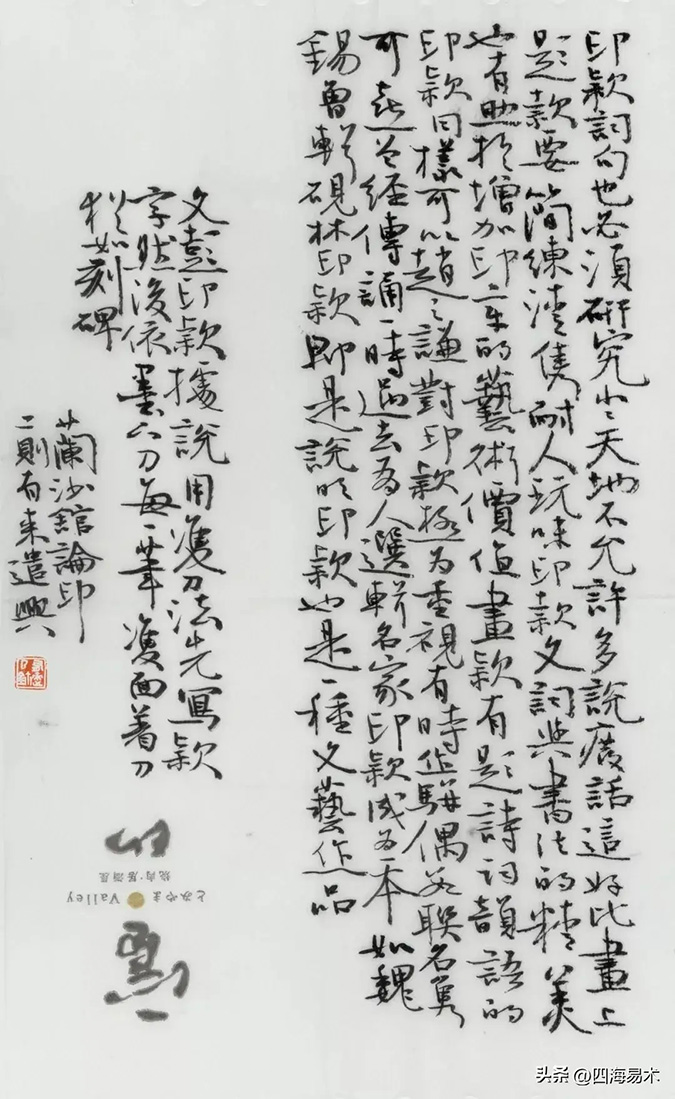 印款詞句也必須研究小小天地不允許多說廢話這好比畫上
題款要簡練淸雋耐人玩味印款文詞與書法的精美
也有助於增加印章的藝術價值畫款有題詩詞韻語的
印款同樣可以趙之謙對印款極為重視有時作駢偶若聯名雋
可喜曾經傳誦一時過去有人選輯名家印款成為一本如魏
錫曾輯硯林印款即是說明印款也是一種文藝作品
文彭印款據說用雙刀法先寫款
字然後依墨下刀每一筆雙面着刀
猶如刻碑
蘭沙館論印
二則有来遣興
とみやま Valley
焼肉·居酒屋
头条 @四海易木